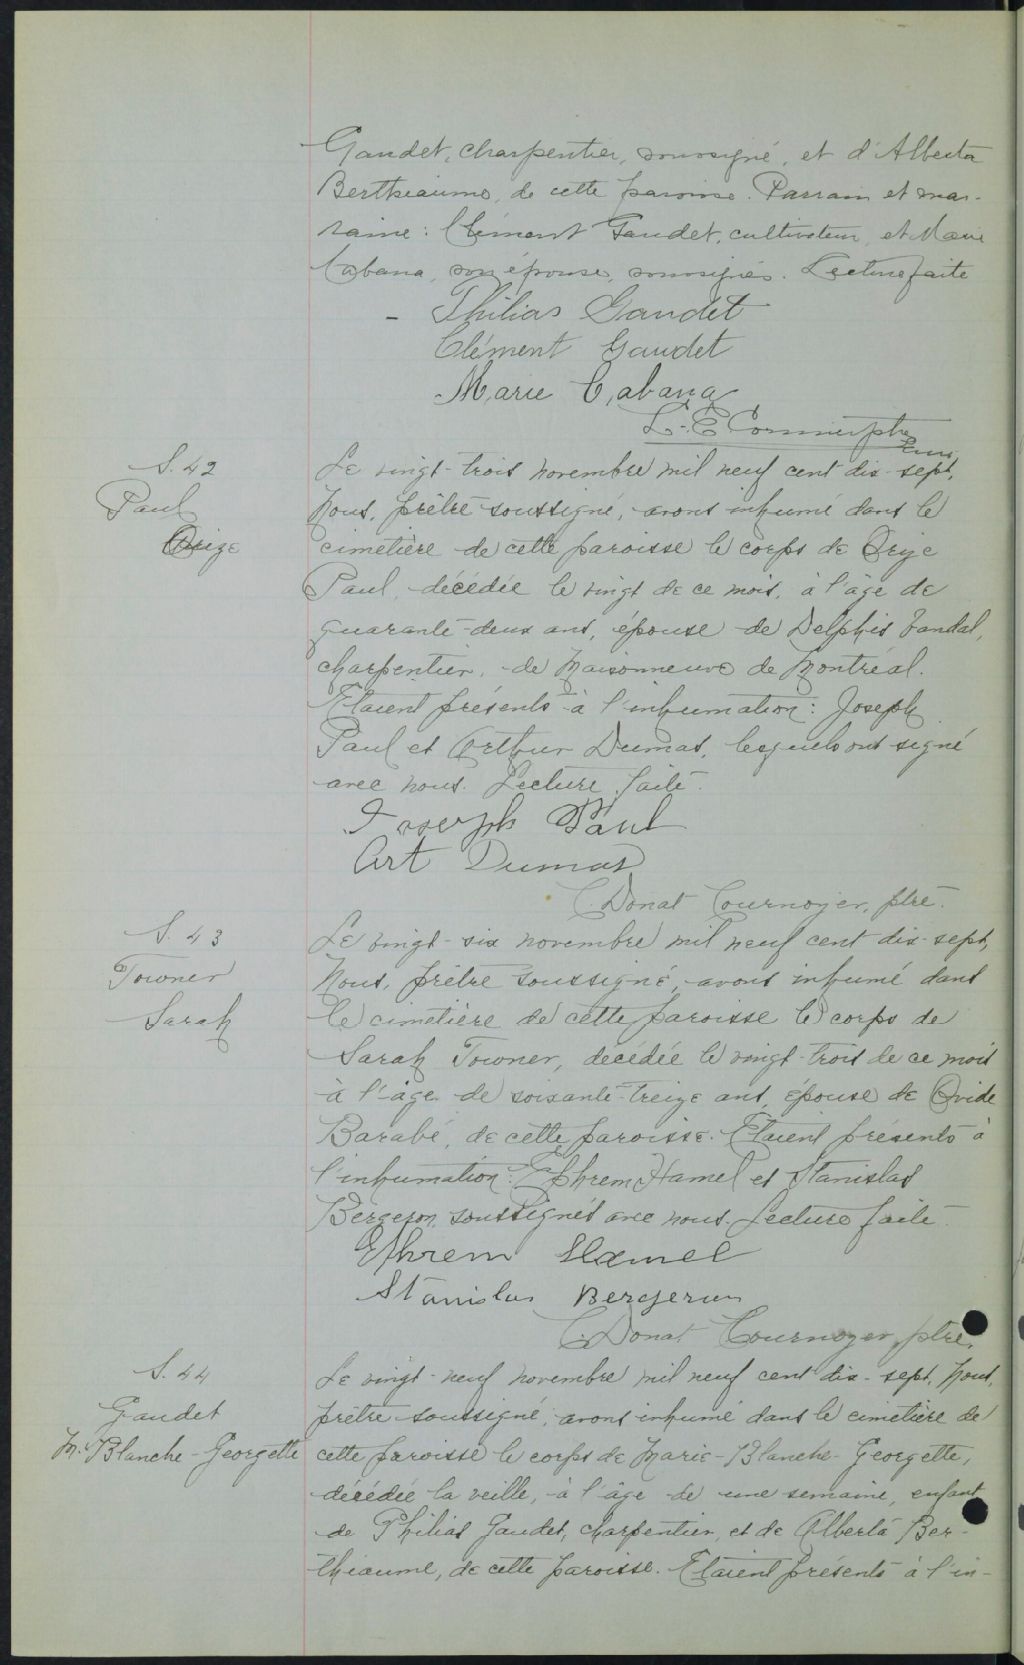 Gaudet, charpentier, soussigné, et d'Alberta
Berthiaume, de cette paroisse. Parrain et mar-
raine: Clément Gaudet, cultivateur, et Marie
Cabana, son épouse, soussignés. Lecture faite
- Philias Gaudet
Clément Gaudet
Marie Cabana
L.-E. Cormier ptre
S. 42
Paul
Orize
Le vingt-trois novembre mil neuf cent dix-sept,
Nous, prêtre soussigné, avons inhumé dans le
cimetière de cette paroisse le corps de Orize
Paul, décédée le vingt de ce mois, à l'âge de
quarante-deux ans, épouse de Delphis Vandal,
charpentier, de Maisonneuve de Montréal.
Etaient présents à l'inhumation: Joseph
Paul et Arthur Dumas, lesquels ont signé
avec nous. Lecture faite.
Joseph Paul
Art Dumas
C. Donat Cournoyer, ptre.
S. 43
Towner
Sarah
Le vingt-six novembre mil neuf cent dix-sept,
Nous, prêtre soussigné, avons inhumé dans
le cimetière de cette paroisse le corps de
Sarah Towner, décédée le vingt-trois de ce mois
à l'âge de soixante-treize ans, épouse de Ovide
Barabé, de cette paroisse. Etaient présents à
l'inhumation: Ephrem Hamel et Stanislas
Bergeron, soussignés avec nous. Lecture faite.
Ephrem Hamel
Stanislas Bergeron
C. Donat Cournoyer, ptre.
S. 44
Gaudet
M. Blanche-Georgette
Le vingt-neuf novembre mil neuf cent dix-sept, Nous,
prêtre soussigné, avons inhumé dans le cimetière de
cette paroisse le corps de Marie-Blanche-Georgette,
décédée la veille, à l'âge de une semaine, enfant
de Philias Gaudet, charpentier, et de Alberta Ber-
thiaume, de cette paroisse. Etaient présents à l'in-